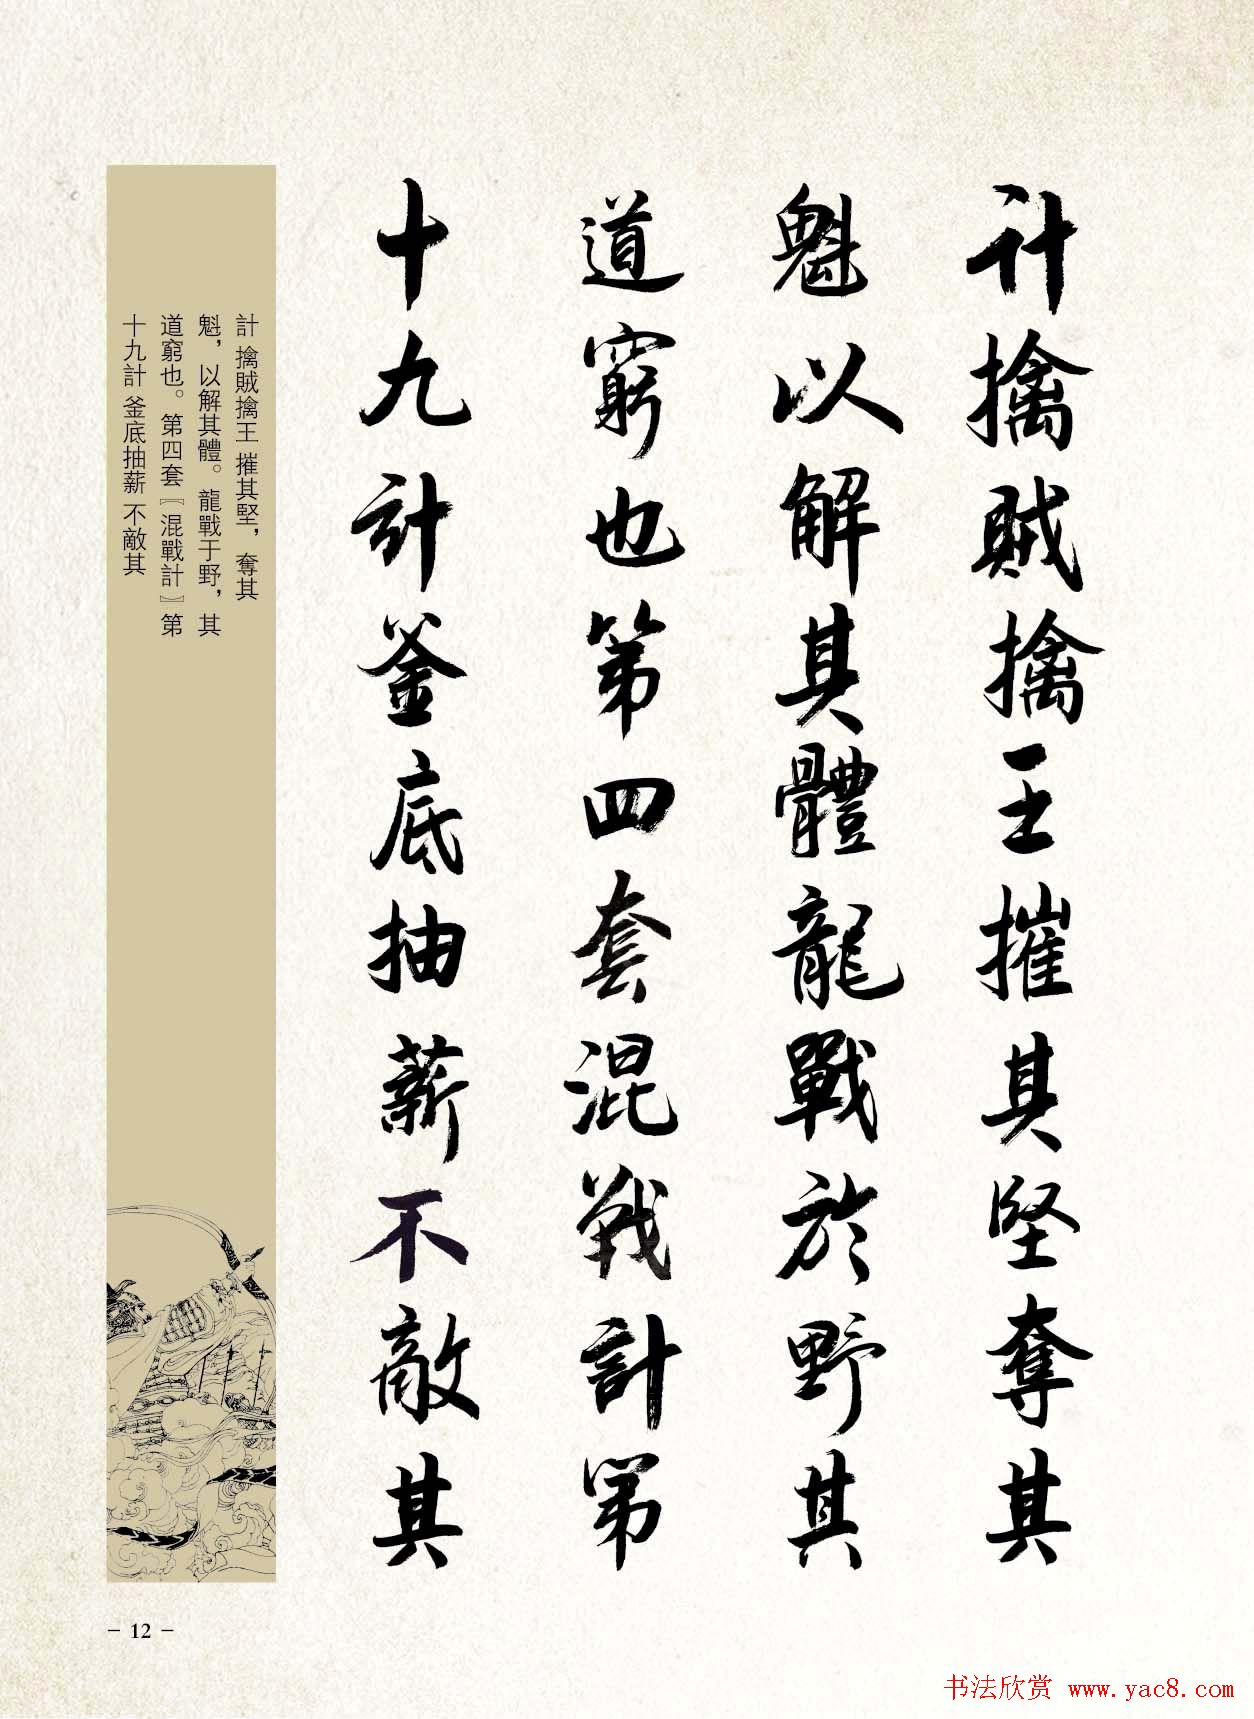 計擒賊擒王摧其堅奪其
魁以解其體龍戰於野其
道窮也第四套混戰計第
十九計釜底抽薪不敵其
計 擒賊擒王 摧其堅，奪其
魁，以解其體。龍戰于野，其
道窮也。第四套〖混戰計〗第
十九計 釜底抽薪 不敵其
- 12 -
书法欣赏 www.yac8.com